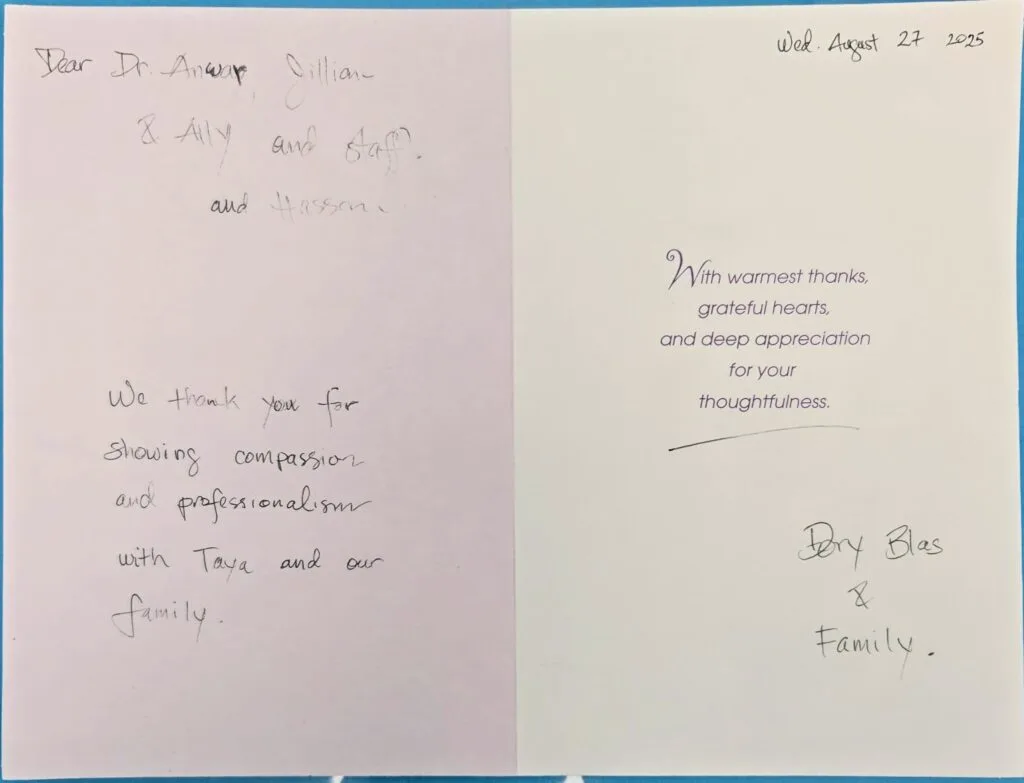 Dear Dr. Anwar, Jillian
& Ally and staff.
and Hassan.
We thank you for
showing compassion
and professionalism
with Taya and our
family.
Wed. August 27 2025
With warmest thanks,
grateful hearts,
and deep appreciation
for your
thoughtfulness.
Dory Blas
&
Family.